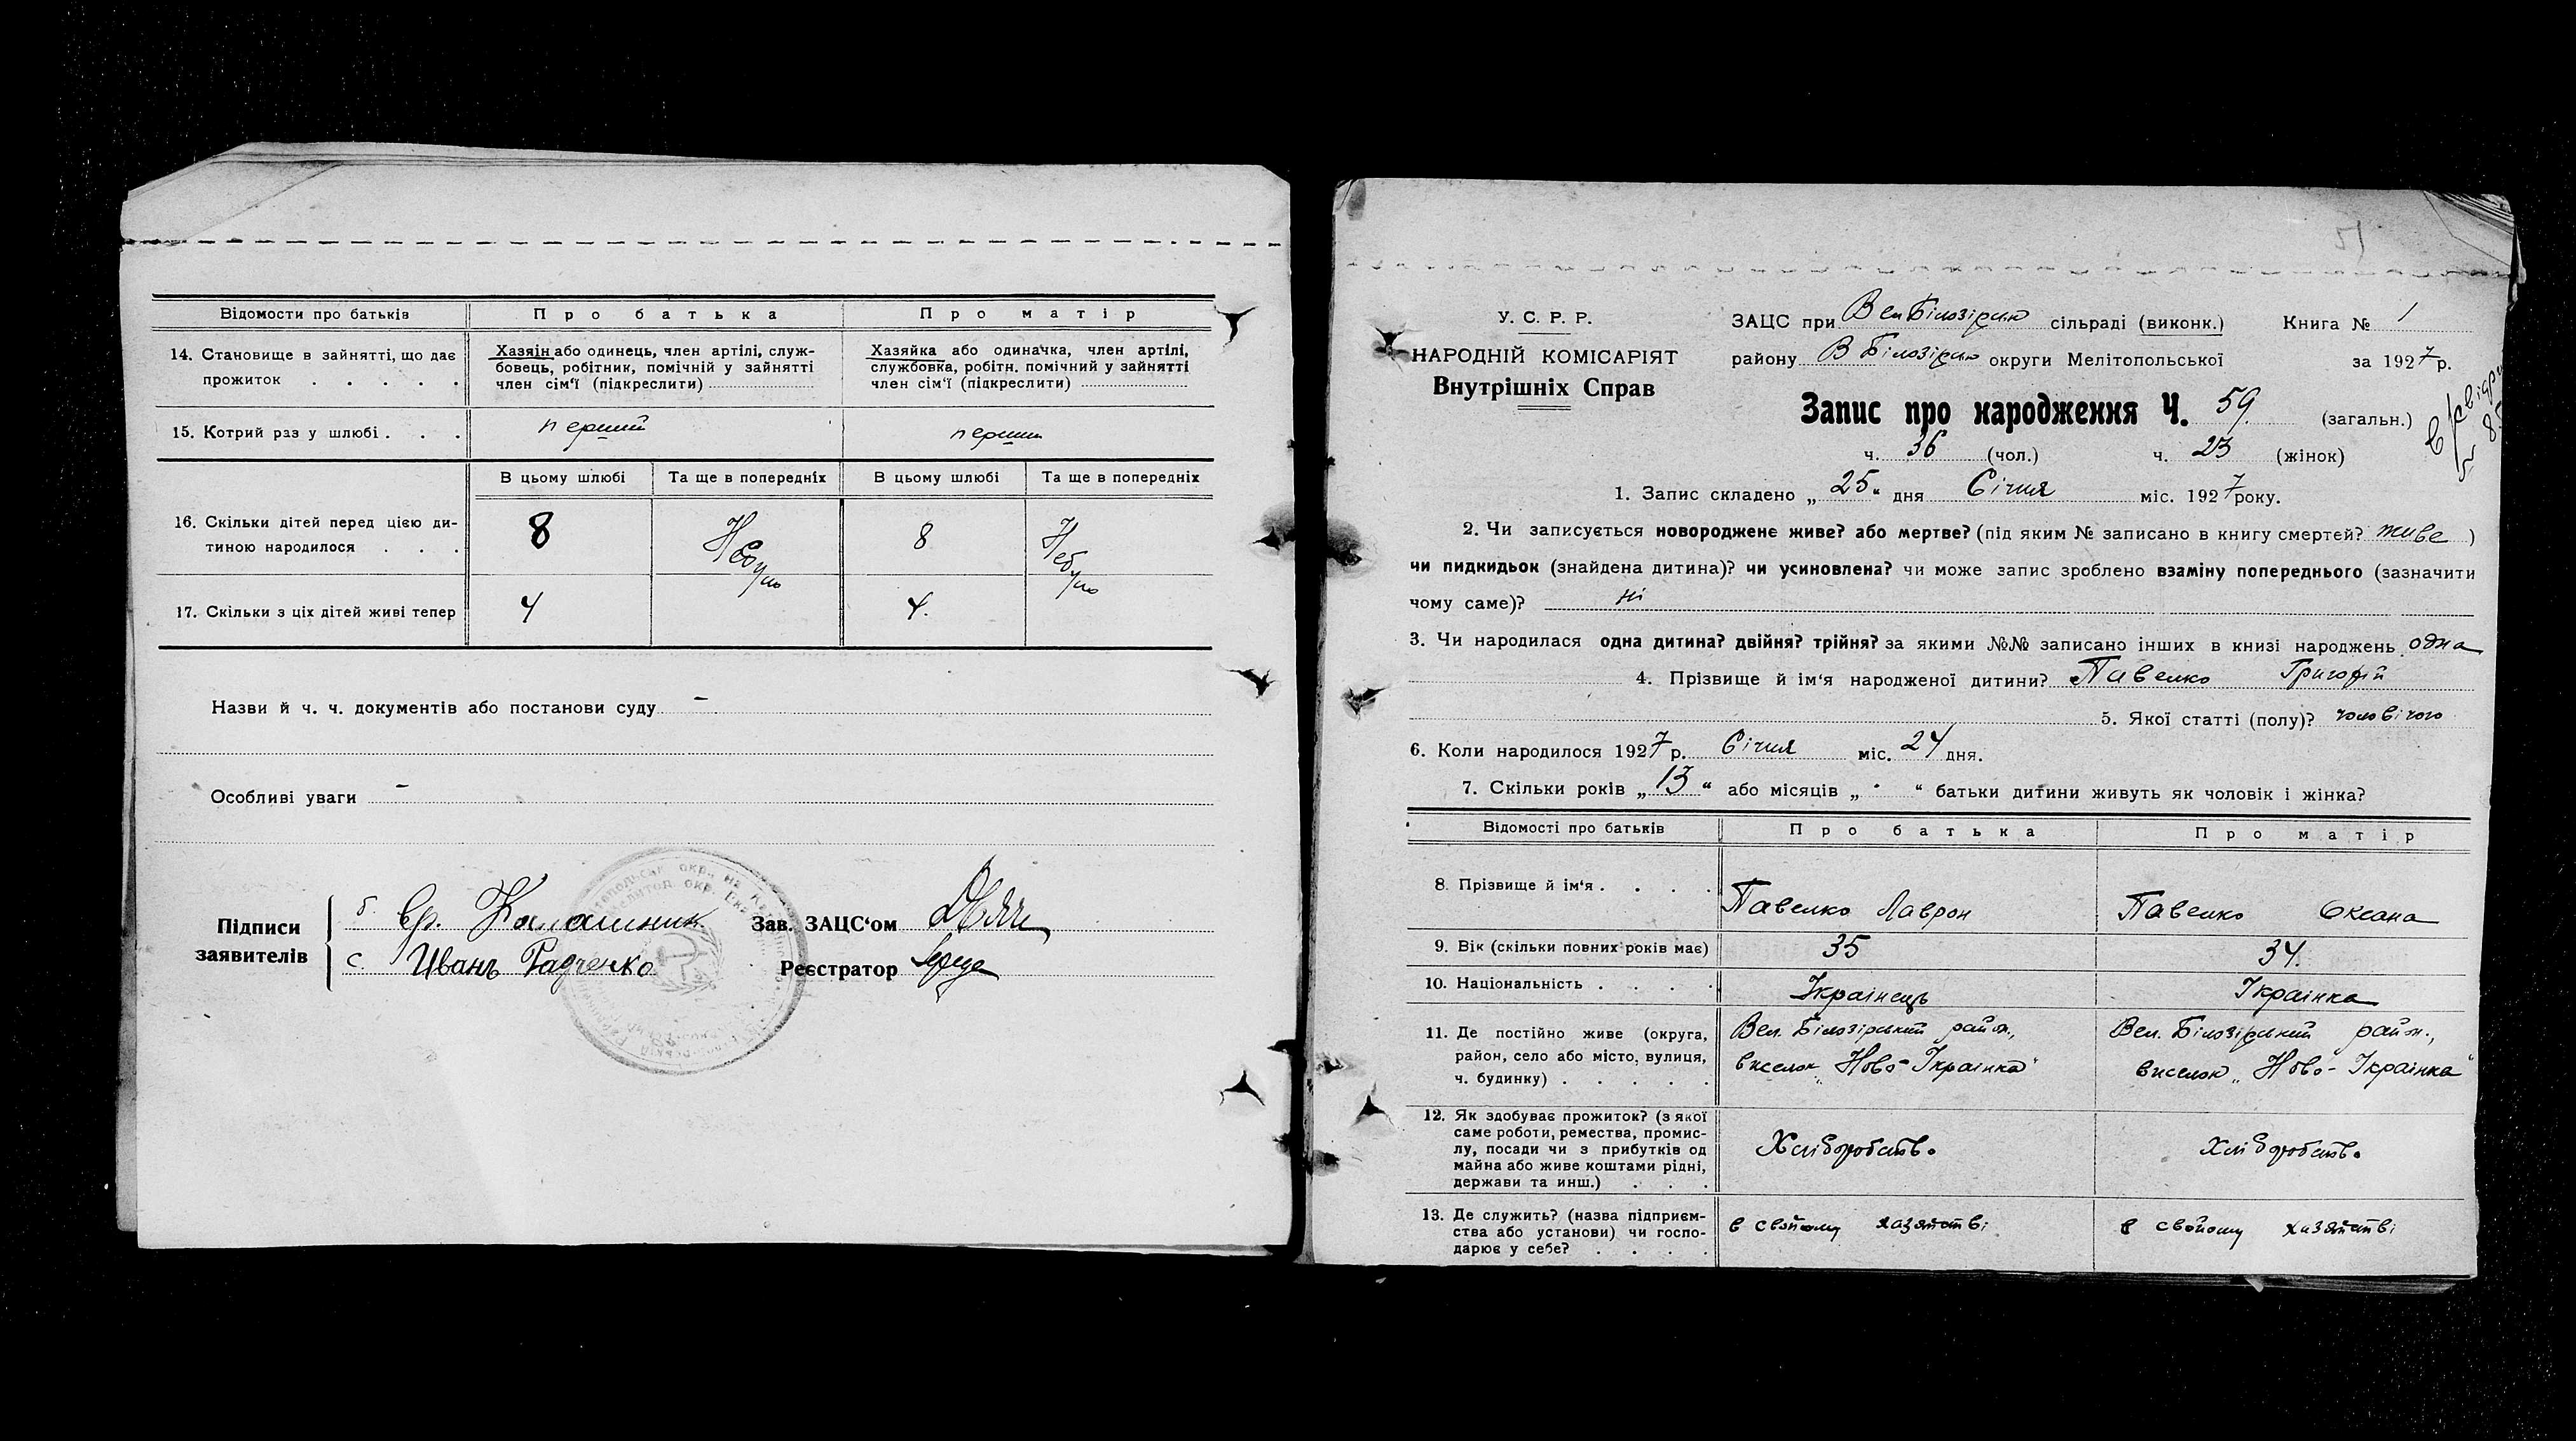 Відомости про батьків Про батька Про матір
14. Становище в зайнятті, що дає прожиток . . . . .
Хазяїн або одинець, член артілі, служ-
бовець, робітник, помічній у зайнятті
член сім'ї (підкреслити)
Хазяйка або одиначка, член артілі,
службовка, робітн. помічний у зайнятті
член сім'ї (підкреслити)
15. Котрий раз у шлюбі . . . перший перший
В цьому шлюбі Та ще в попередніх В цьому шлюбі Та ще в попередніх
16. Скільки дітей перед цією ди-
тиною народилося . . . 8 Небуло 8 Небуло
17. Скільки з ціх дітей живі тепер 4 4.
Назви й ч. ч. документів або постанови суду –
Особливі уваги –
Підписи
заявителів
б. Гр. Калашник
с. Иванъ Радченко
Зав. ЗАЦС'ом
Реєстратор
У. С. Р. Р.
НАРОДНІЙ КОМІСАРІЯТ
Внутрішніх Справ
ЗАЦС при Вел Білозірськ сільраді (виконк.) Книга № 1
району В Білозірськ округи Мелітопольської за 1927 р.
Запис про народження Ч. 59. (загальн.)
ч. 36 (чол.) ч. 23 (жінок)
1. Запис складено „ 25 “ дня Січня міс. 1927 року.
2. Чи записується новороджене живе? або мертве? (під яким № записано в книгу смертей? живе )
чи пидкидьок (знайдена дитина)? чи усиновлена? чи може запис зроблено взаміну попереднього (зазначити
чому саме)? ні
3. Чи народилася одна дитина? двійня? трійня? за якими №№ записано інших в книзі народжень одна
4. Прізвище й ім'я народженої дитини? Павелко Григорій
5. Якої статті (полу)? чоловічого
6. Коли народилося 1927 р. Січня міс. 24 дня.
7. Скільки років „ 13 “ або місяців „ - “ батьки дитини живуть як чоловік і жінка?
Відомості про батьків Про батька Про матір
8. Прізвище й ім'я . . . . Павелко Лаврон Павелко Оксана
9. Вік (скільки повних років має) 35 34.
10. Національність . . . . Українець Українка
11. Де постійно живе (округа,
район, село або місто, вулиця,
ч. будинку) . . . . .
Вел. Білозірський район.,
виселок „Ново-Українка“
Вел. Білозірський район.,
виселок „Ново-Українка“
12. Як здобуває прожиток? (з якої
саме роботи, ремества, промис-
лу, посади чи з прибутків од
майна або живе коштами рідні,
держави та инш.) . . .
Хліборобств. Хліборобств.
13. Де служить? (назва підприєм-
ства або установи) чи госпо-
дарює у себе? . . . .
в свойому хазяйстві в свойому хазяйстві